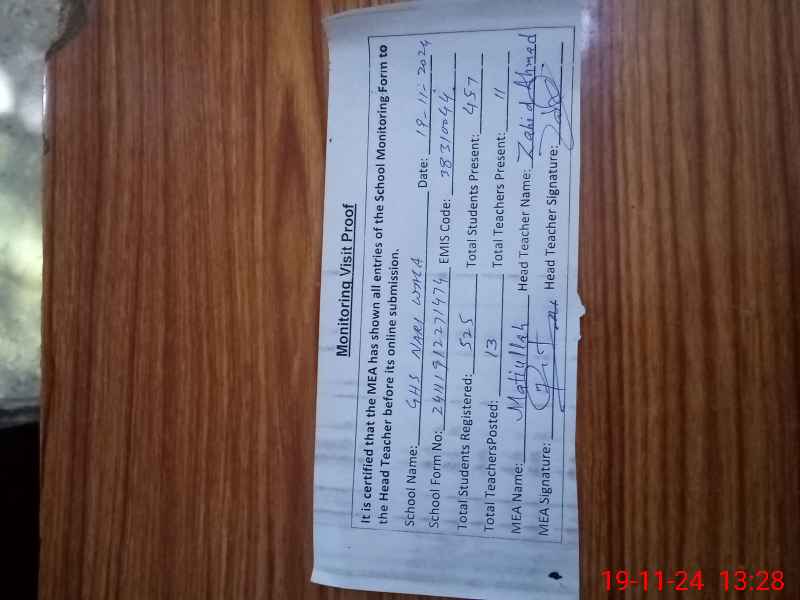 Monitoring Visit Proof
It is certified that the MEA has shown all entries of the School Monitoring Form to
the Head Teacher before its online submission.
School Name: GHS NARI WALA Date: 19-11-2024
School Form No: 241119122271474 EMIS Code: 38310044
Total Students Registered: 525 Total Students Present: 457
Total TeachersPosted: 13 Total Teachers Present: 11
MEA Name: Matiullah Head Teacher Name: Zahid Ahmad
MEA Signature: Head Teacher Signature:
19-11-24 13:28